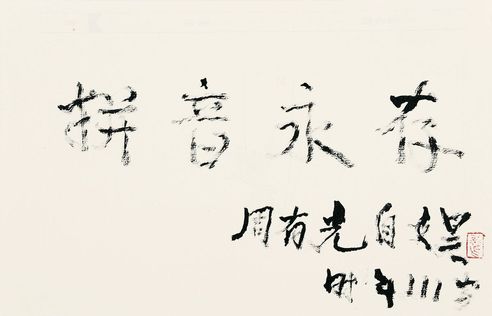 拼音永存
周有光自娱
时年111岁